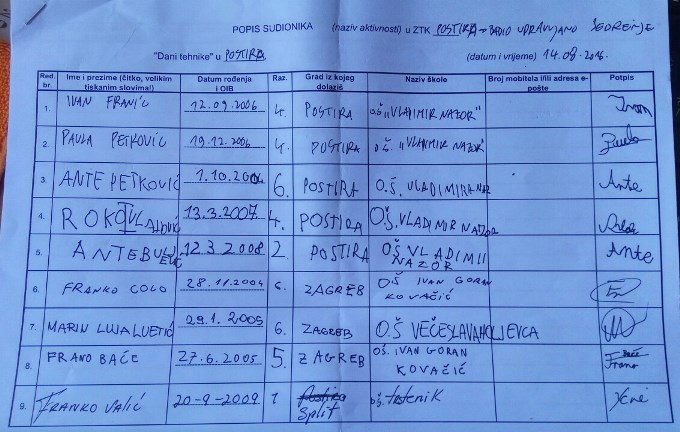 POPIS SUDIONIKA (naziv aktivnosti) u ZTK POSTIRA - RADIO UPRAVLJANO JEDRENJE
"Dani tehnike" u POSTIRA (datum i vrijeme) 14.08.2016.
Red. br. Ime i prezime (čitko, velikim tiskanim slovima!) Datum rođenja i OIB Raz. Grad iz kojeg dolaziš Naziv škole Broj mobitela i/ili adresa e-pošte Potpis
1. IVAN FRANIĆ 12.09.2006 4. POSTIRA OŠ "VLADIMIR NAZOR" Ivan
2. PAULA PETKOVIĆ 19.12.2006 4. POSTIRA OŠ. "VLADIMIR NAZOR" Paula
3. ANTE PETKOVIĆ 1.10.2004 6. POSTIRA O.Š. VLADIMIRA NAZ Ante
4. ROKO 13.3.2007 4. POSTIRA O.Š. VLADIMIR NAZOR
5. ANTE 12.3.2008 2. POSTIRA OŠ VLADIMII NAZOR Ante
6. FRANKO COLO 28.11.2004 6. ZAGREB OŠ IVAN GORAN KOVAČIĆ
7. MARIN 29.1.2005 6. ZAGREB O.Š VEČESLAVA HOLJEVCA
8. FRANO BAČE 27.6.2005 5. ZAGREB OŠ. IVAN GORAN KOVAČIĆ Frano
9. FRANKO VALIĆ 20-9-2009 1 Split OŠ. trstenik